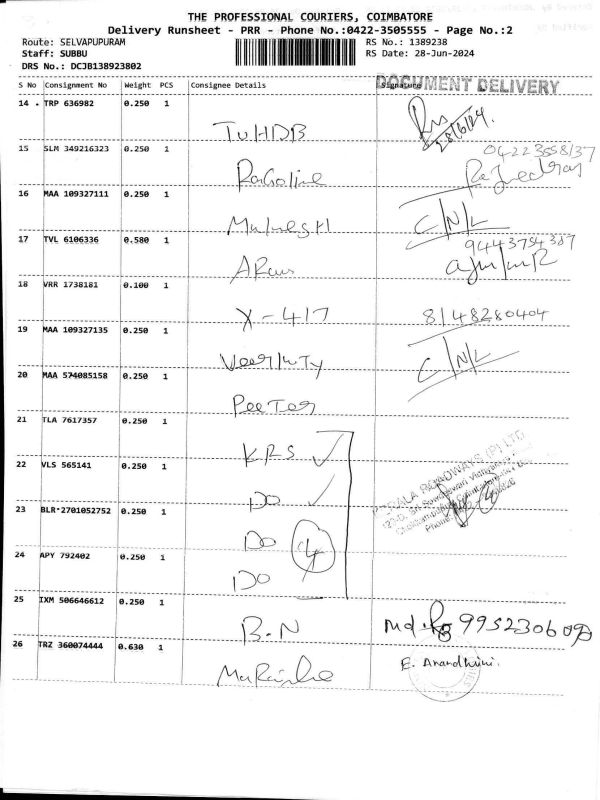 THE PROFESSIONAL COURIERS, COIMBATORE
Delivery Runsheet - PRR - Phone No.:0422-3505555 - Page No.:2
Route: SELVAPUPURAM
RS No.: 1389238
Staff: SUBBU
RS Date: 28-Jun-2024
DRS No.: DCJB138923802
S No Consignment No Weight PCS Consignee Details Signature
DOCUMENT DELIVERY
14 TRP 636982 0.250 1
TUHDB 28/6/24.
15 SLM 349216323 0.250 1
04223558137
16 MAA 109327111 0.250 1
C/N/L
17 TVL 6106336 0.580 1
9443754387
18 VRR 1738181 0.100 1
X-417 8148280404
19 MAA 109327135 0.250 1
C/N/L
20 MAA 574085158 0.250 1
PeeTer
21 TLA 7617357 0.250 1
KRS
22 VLS 565141 0.250 1
Do
23 BLR 2701052752 0.250 1
Do 4
24 APY 792402 0.250 1
Do
ROADWAYS (P) LTD
25 IXM 506646612 0.250 1
B.N Md.
26 TRZ 360074444 0.630 1
E. Anandhini.